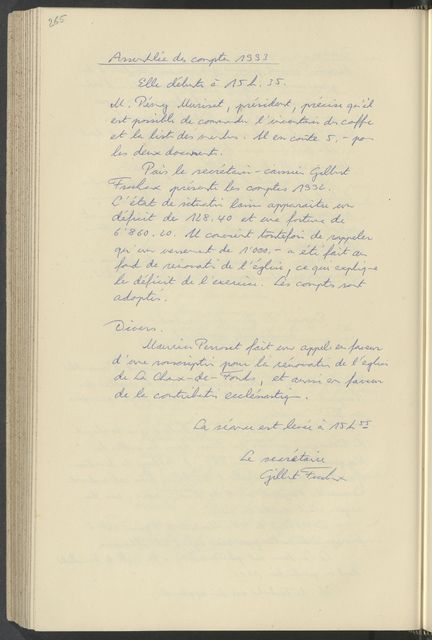 265
Assemblée des comptes 1993
Elle débute à 15h.35.
M. Pérey Muriset, président, précise qu'il
est possible de commander l'inventaire du coffre
et la liste des membres. Il en coûte 5.- pour
les deux documents.
Puis le secrétaire-caissier Gilbert
présente les comptes 1992.
L'état de situation laisse apparaître un
déficit de 128.40 et une fortune de
6'860.10. Il convient toutefois de rappeler
qu'un versement de 1'000.- a été fait au
fond de rénovation de l'église, ce qui explique
le déficit de l'exercice. Les comptes sont
adoptés.
Divers.
Maurice Perroset fait un appel en faveur
d'une souscription pour la rénovation de l'église
de La Chaux-de-Fonds, et aussi en faveur
de la contribution ecclésiastique.
La séance est levée à 15h55
Le secrétaire
Gilbert